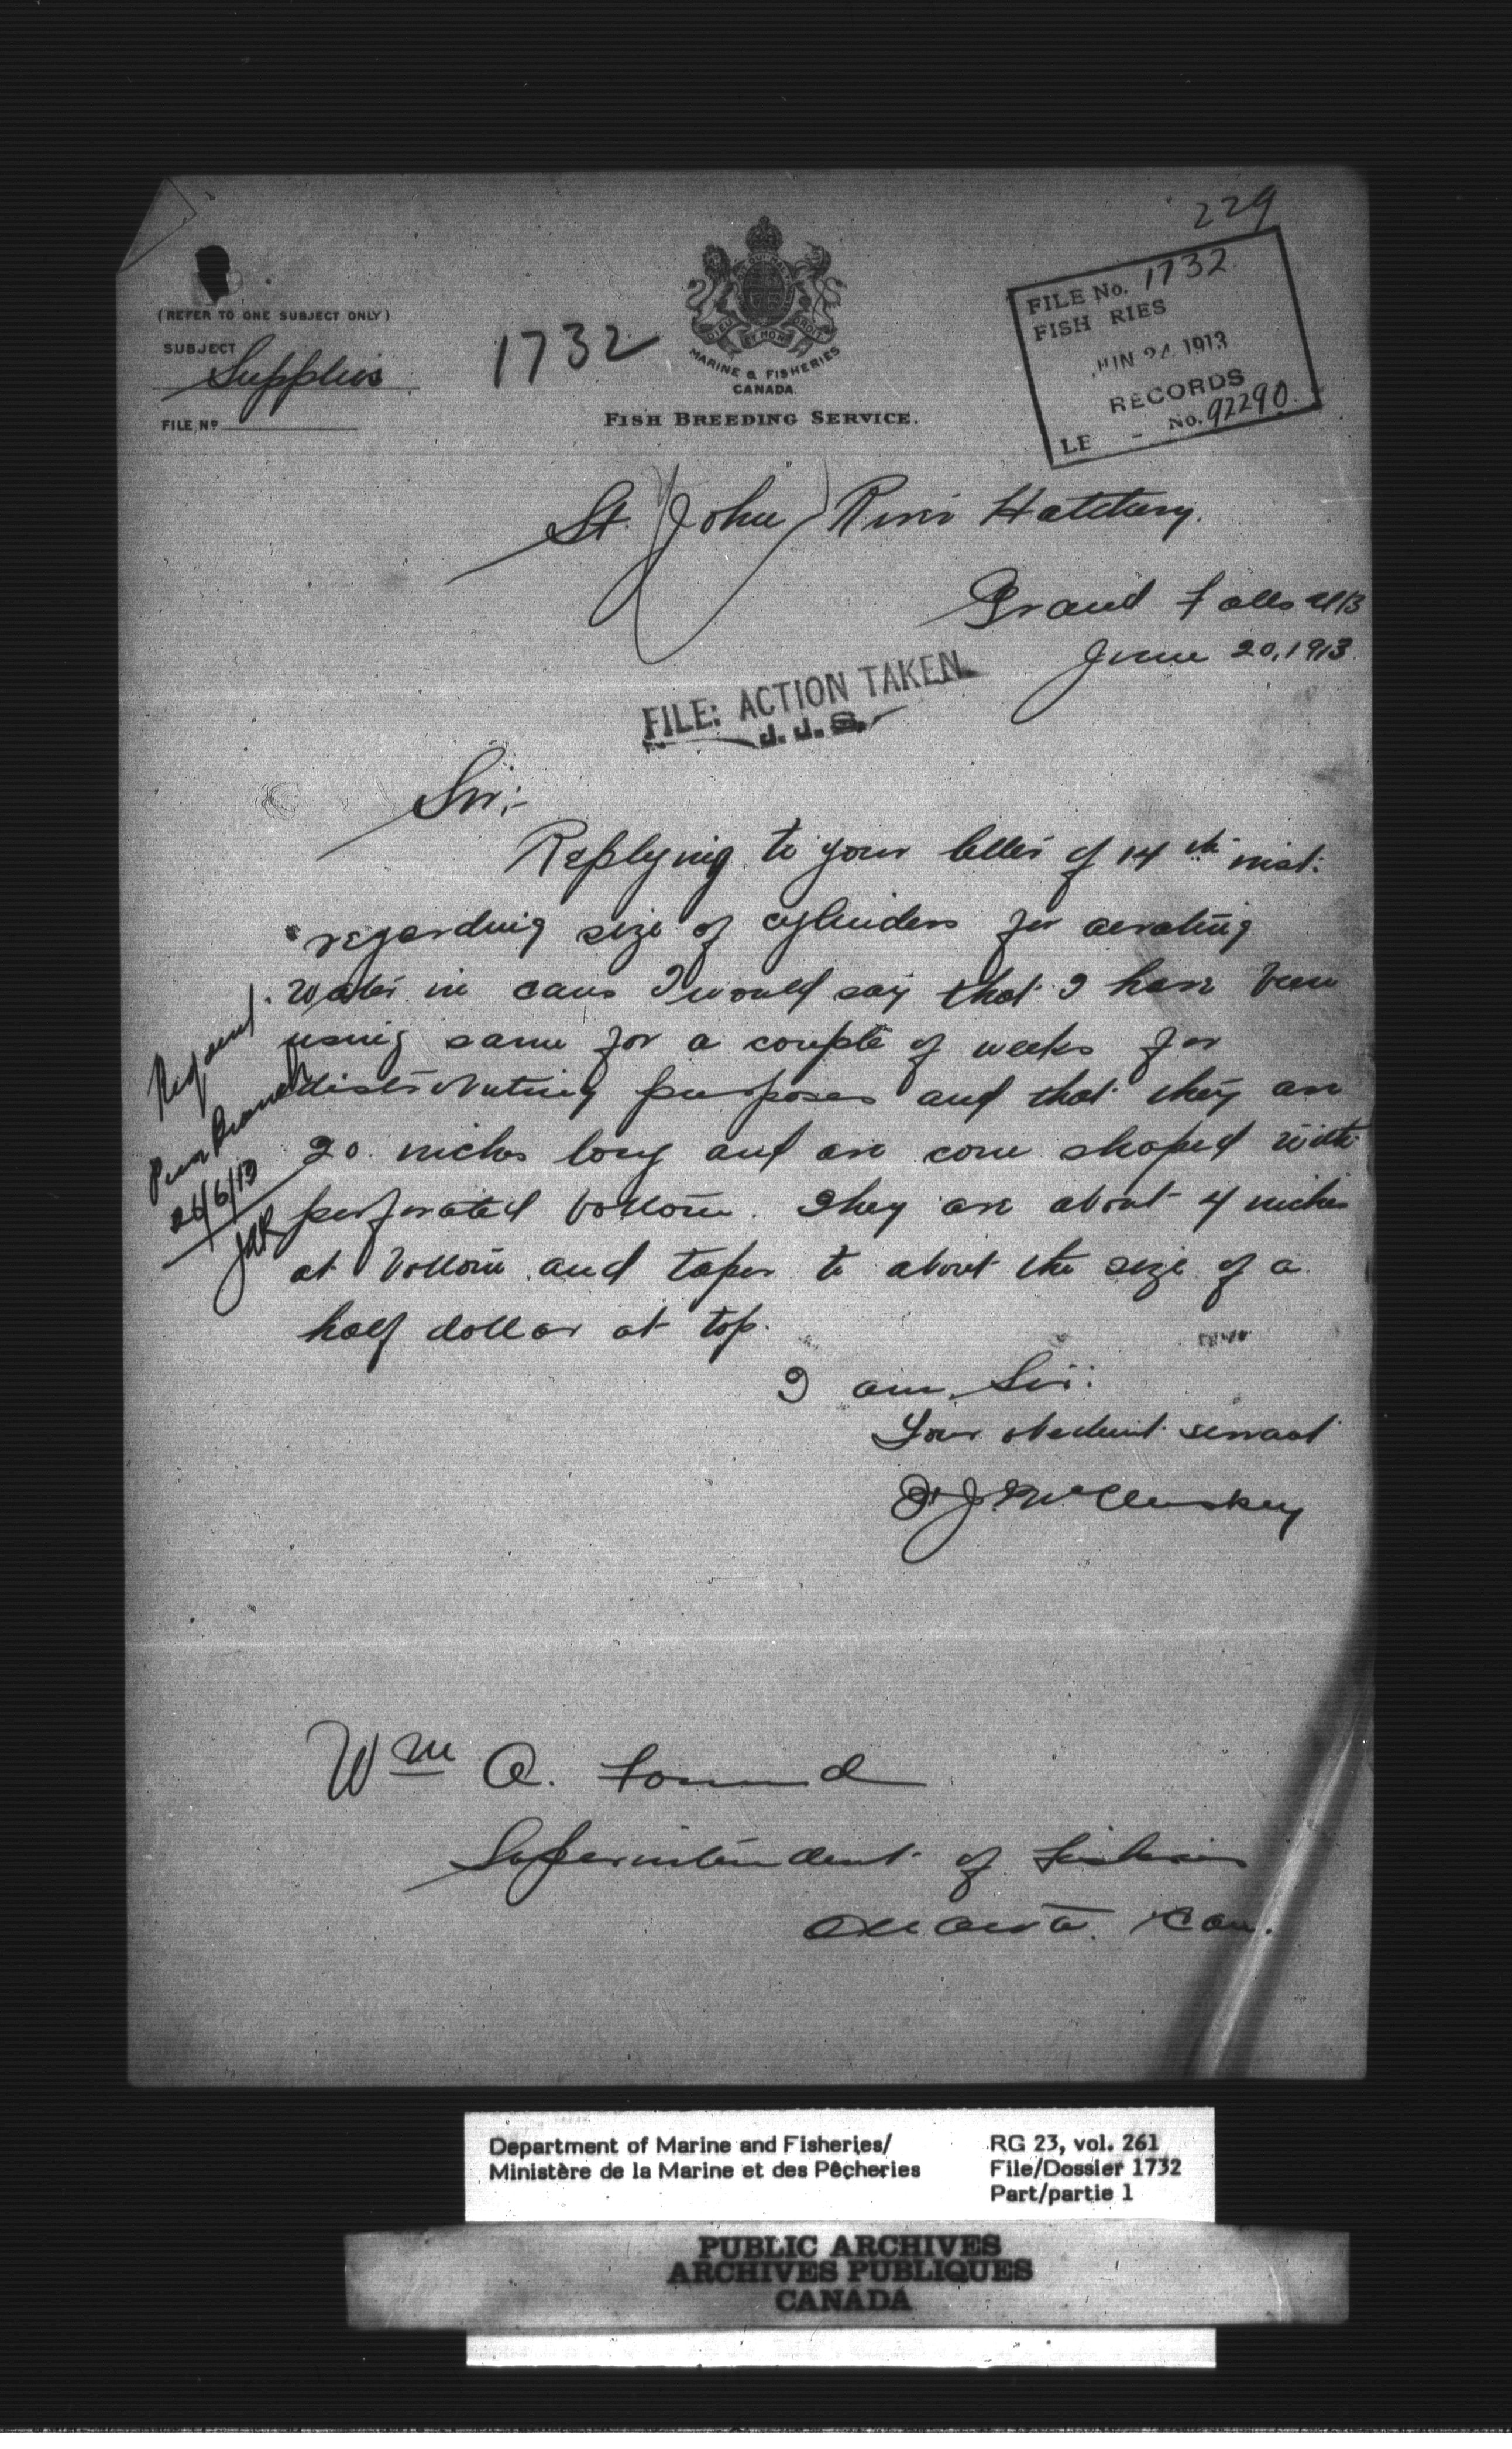 229
(REFER TO ONE SUBJECT ONLY)
SUBJECT
Supplies
FILE, No
1732
DIEU ET MON DROIT
MARINE & FISHERIES
CANADA.
FISH BREEDING SERVICE.
FILE No. 1732.
FISH RIES
JUN 24 1913
RECORDS
LE - No. 92290.
St. John River Hatchery.
Grand Falls NB
June 20, 1913.
FILE: ACTION TAKEN
J. J. S.
Sir;-
Replying to your letter of 14th inst:
regarding size of cylinders for aerating
water in cans I would say that I have been
using same for a couple of weeks for
distributing purposes and that they are
20 inches long and are cone shaped with
perforated bottom. They are about 4 inches
at bottom and taper to about the size of a
half dollar at top.
Branch
26/6/13
I am, Sir:
Your obedient servant
McCluskey
Wm A. Found
Superintendent of Fisheries
Ottawa. Can.
Department of Marine and Fisheries/
Ministère de la Marine et des Pêcheries
RG 23, vol. 261
File/Dossier 1732
Part/partie 1
PUBLIC ARCHIVES
ARCHIVES PUBLIQUES
CANADA